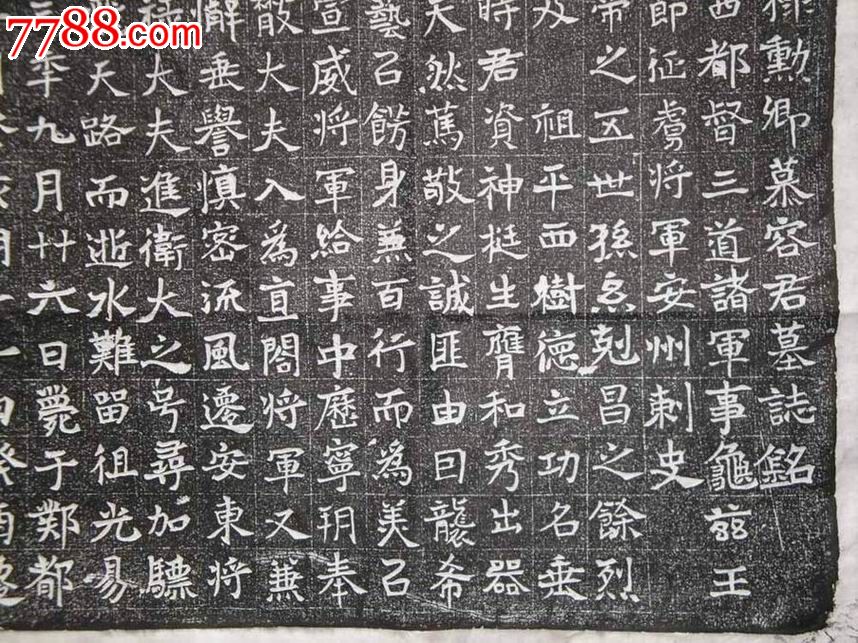 7788.com
祿勳卿慕容君墓誌銘
西都督三道諸軍事龜茲王
節征虜将軍安州刺史
帝之五世孫㤙剋昌之餘烈
祖平西樹德立功名垂
時君資神挺生膺和秀出器
天然蔿敬之誠匪由曰襲希
藝㠯餝身蒹百行而為美㠯
宣威将軍給事中歷寧玥奉
散大夫入為直閤将軍又蒹
懈垂譽慎密流風遷安東将
大夫進衛大之号尋加驃
天路而逝水難留徂光易
年九月廿六日薨于鄴都
月十一日癸酉